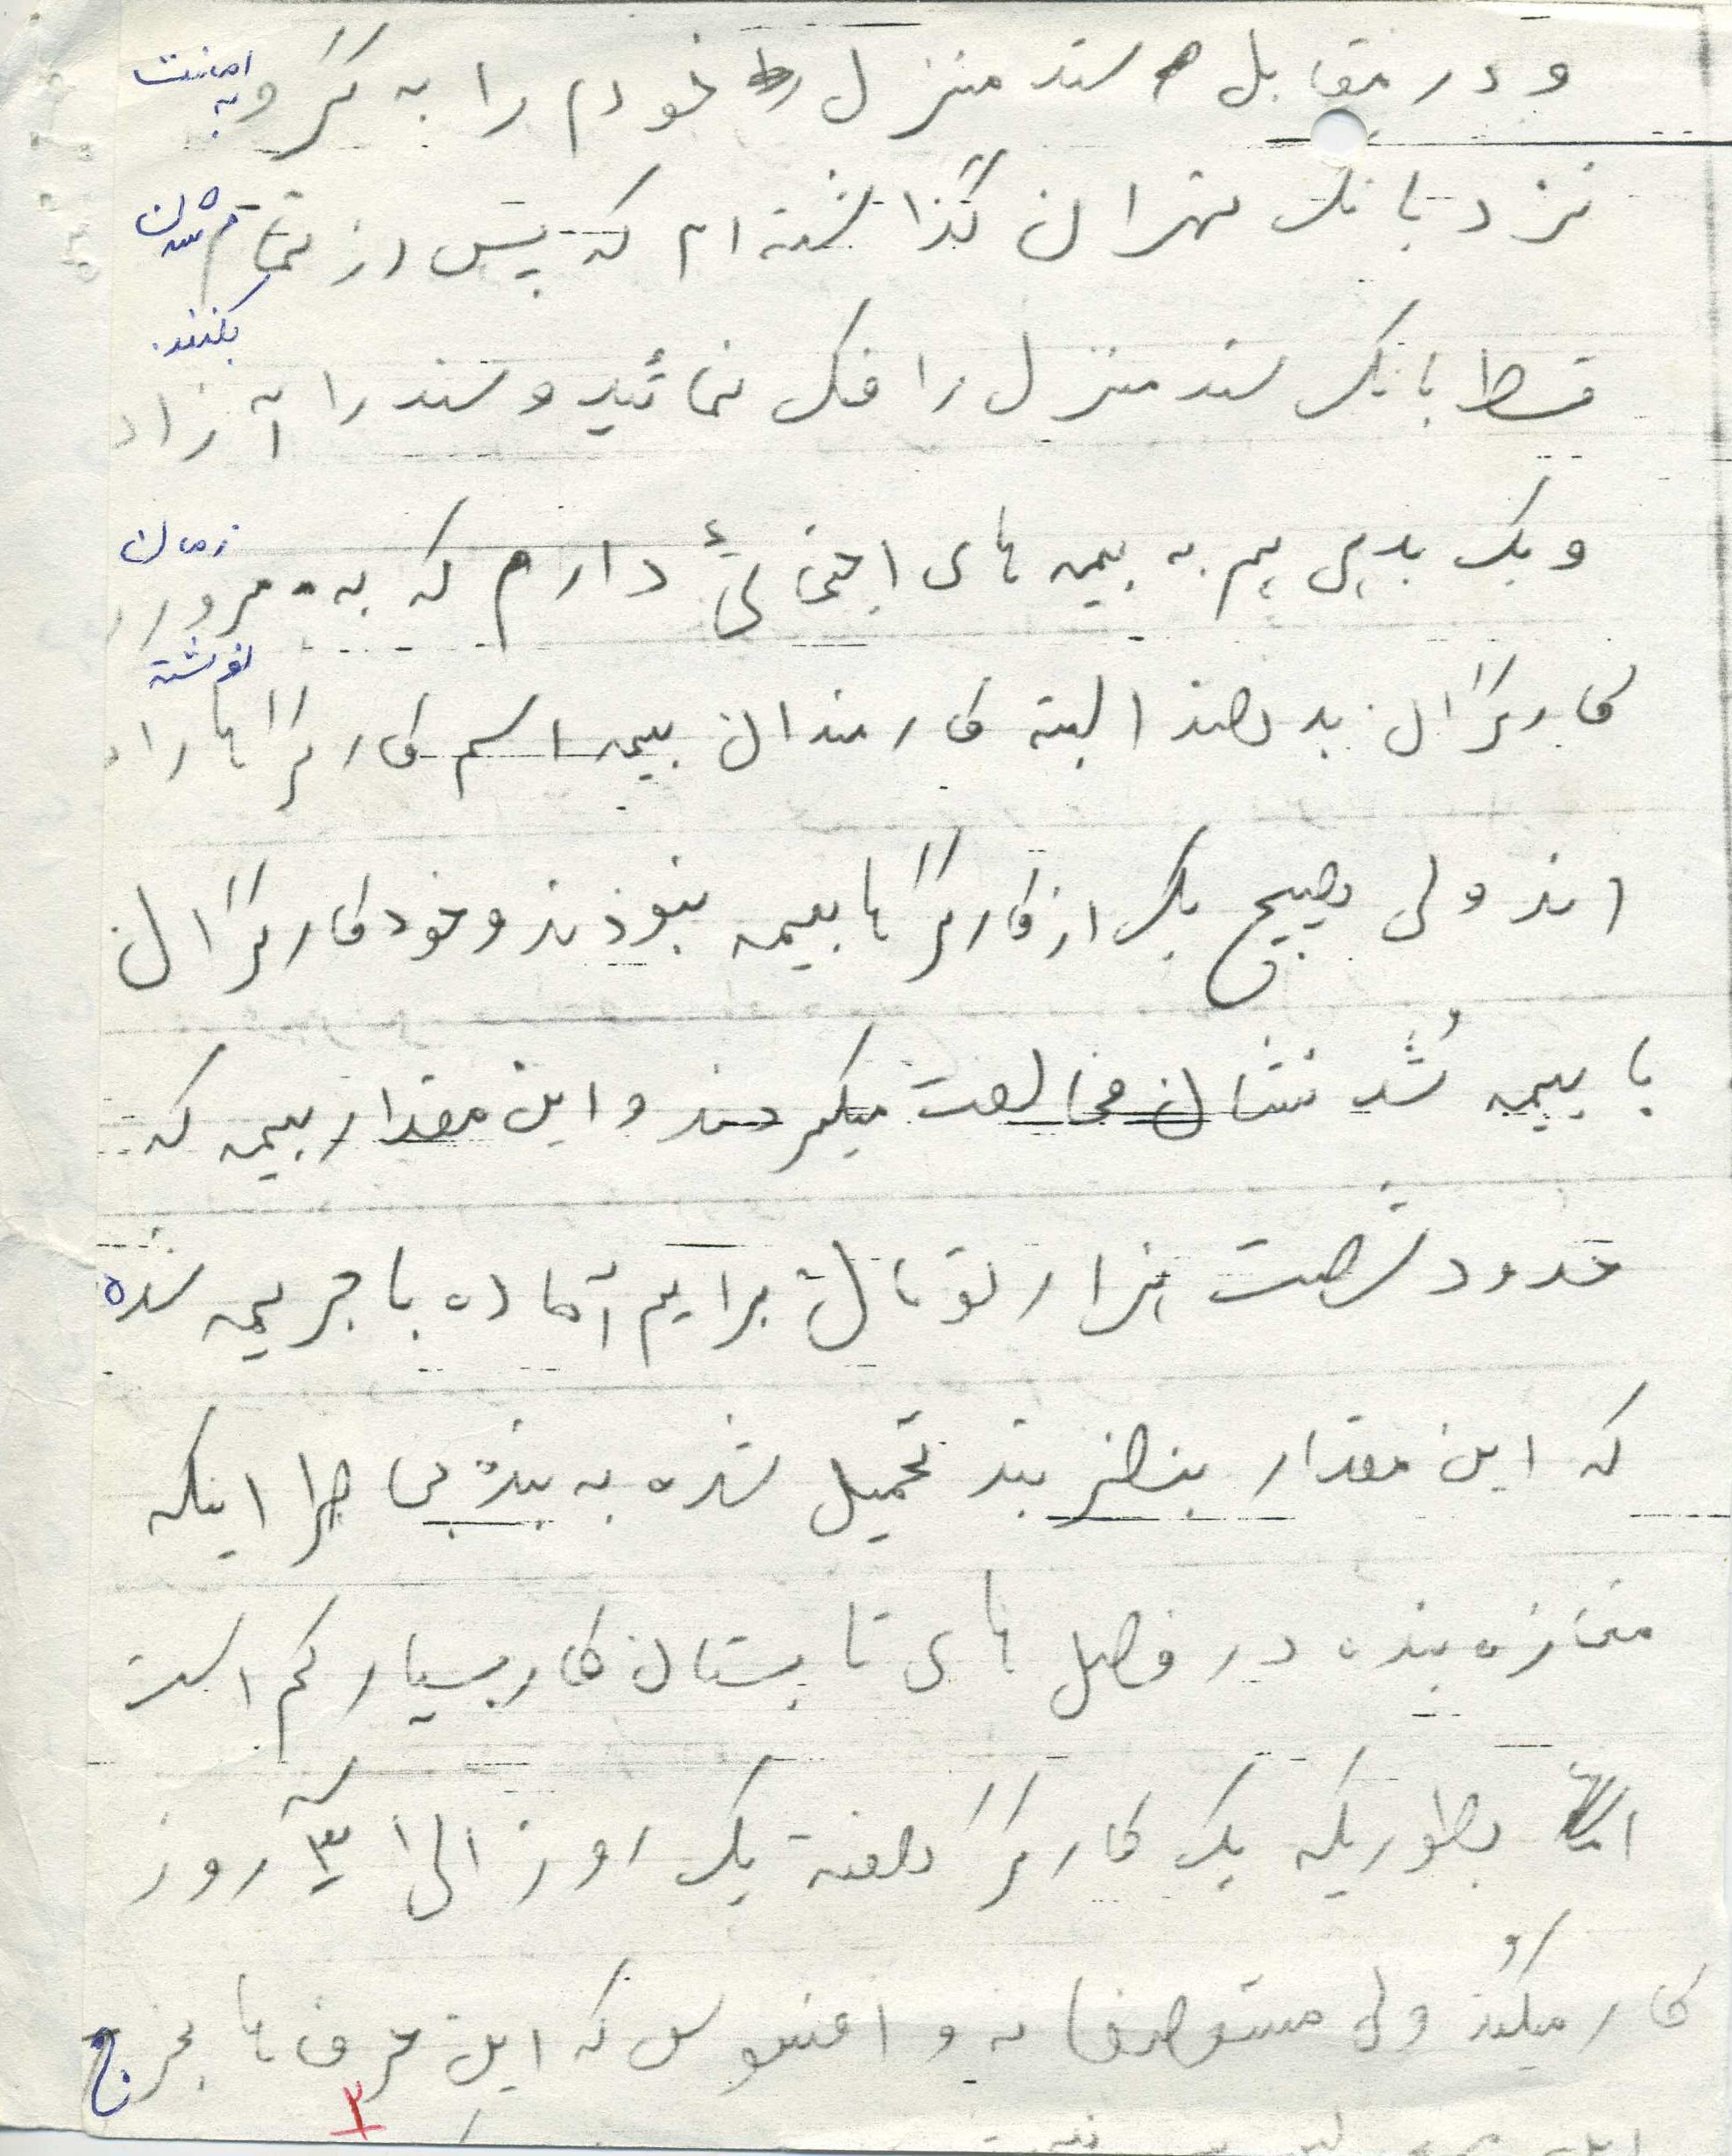 و در مقابل سند منزل خودم را به گرو و به امانت
نزد بانک تهران گذاشته ام که پس از تمام شدن
قسط بانک سند منزل را فک نمائید و سند را آزاد بکنند.
و یک بدهی هم به بیمه های اجتماعی دارم که به مرور زمان
کارگران بدهند البته کارمندان بیمه اسم کارگرها را نوشته
اند ولی بهیچ یک از کارگرها بیمه نبودند و خود کارگران
با بیمه شُدنشان مخالفت میکردند و این مقدار بیمه که
حدود شصت هزار تومان برایم آماده با جریمه شده
که این مقدار بنظر بنده تحمیل شده به بنده می اینکه
مغازه بنده در فصل های تابستان کار بسیار کم است
بطوریکه یک کارگر هفته یک روز الی ۳ روز
کار میکُند ولی متوصفانه و افسوس که این حرف ها بخرج
۲